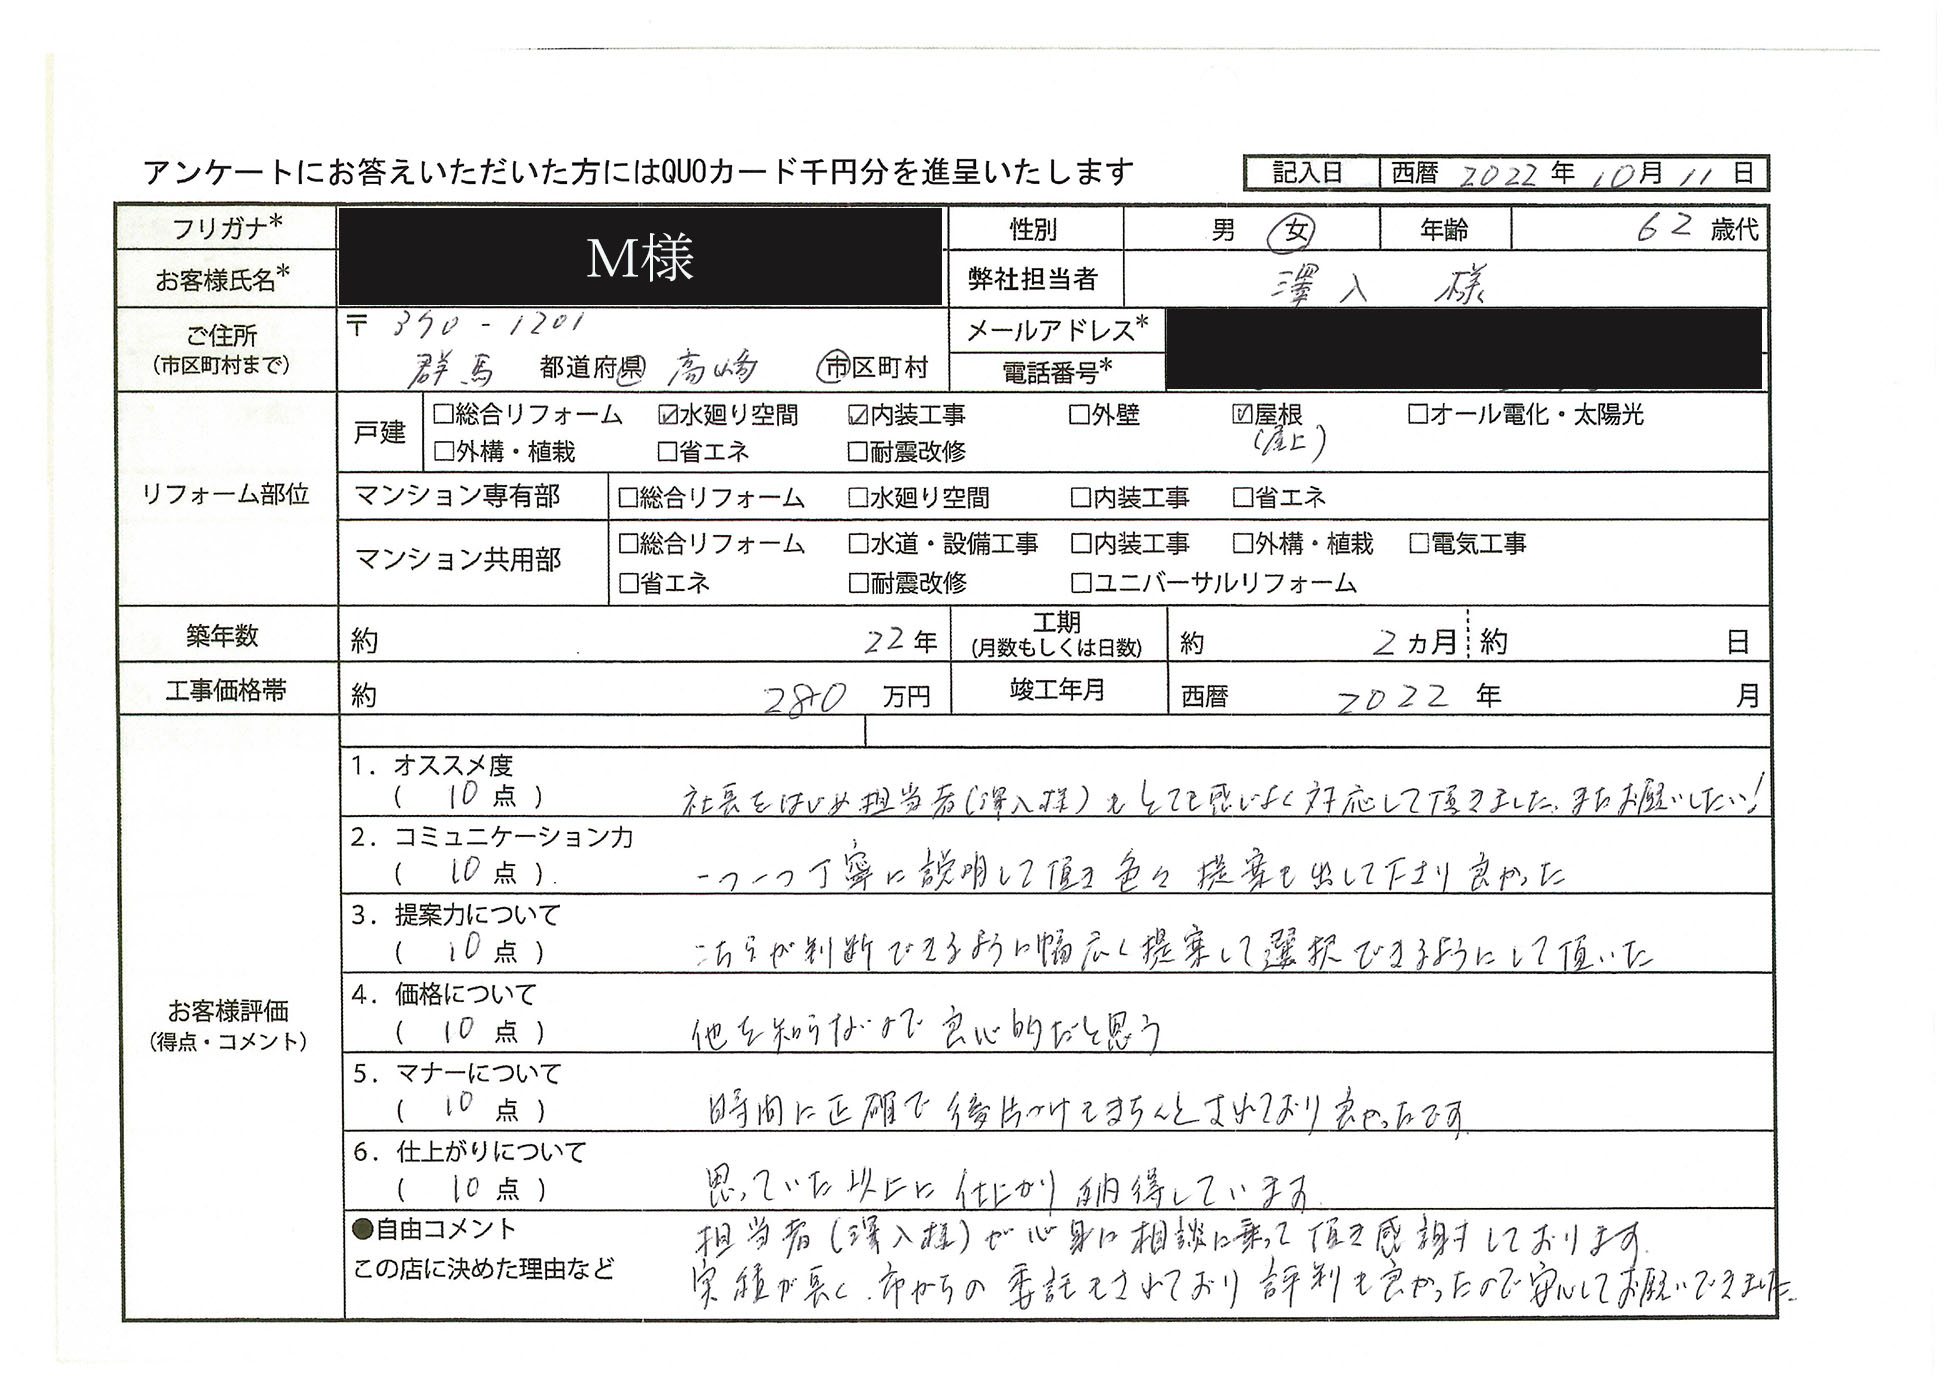 アンケートにお答えいただいた方にはQUOカード千円分を進呈いたします
記入日 西暦 2022 年 10 月 11 日
フリガナ*
M様
性別 男 女 年齢 62 歳代
お客様氏名* 弊社担当者 澤入 様
ご住所
(市区町村まで)
〒 370-1201
群馬 都道府県 高崎 市区町村
メールアドレス*
電話番号*
リフォーム部位
戸建 □総合リフォーム ☑水廻り空間 ☑内装工事 □外壁 ☑屋根 □オール電化・太陽光
(屋上)
□外構・植栽 □省エネ □耐震改修
マンション専有部 □総合リフォーム □水廻り空間 □内装工事 □省エネ
マンション共用部 □総合リフォーム □水道・設備工事 □内装工事 □外構・植栽 □電気工事
□省エネ □耐震改修 □ユニバーサルリフォーム
築年数 約 22 年 工期 (月数もしくは日数) 約 2 ヵ月 約 日
工事価格帯 約 280 万円 竣工年月 西暦 2022 年 月
お客様評価
(得点・コメント)
1．オススメ度
( 10 点 ) 社長をはじめ担当者(澤入様)もとても感じよく対応して頂きました、またお願いしたい!
2．コミュニケーション力
( 10 点 ) 一つ一つ丁寧に説明して頂き色々提案も出して下さり良かった
3．提案力について
( 10 点 ) こちらが判断できるように幅広く提案して選択できるようにして頂いた
4．価格について
( 10 点 ) 他を知らないので良心的だと思う
5．マナーについて
( 10 点 ) 時間に正確で後片づけもきちんとされており良かったです
6．仕上がりについて
( 10 点 ) 思っていた以上に仕上がり納得しています。
●自由コメント
この店に決めた理由など
担当者(澤入様)が心身に相談に乗って頂き感謝すしております。
実績が長く、市からの委託もされており評判も良かったので安心してお願いできました。